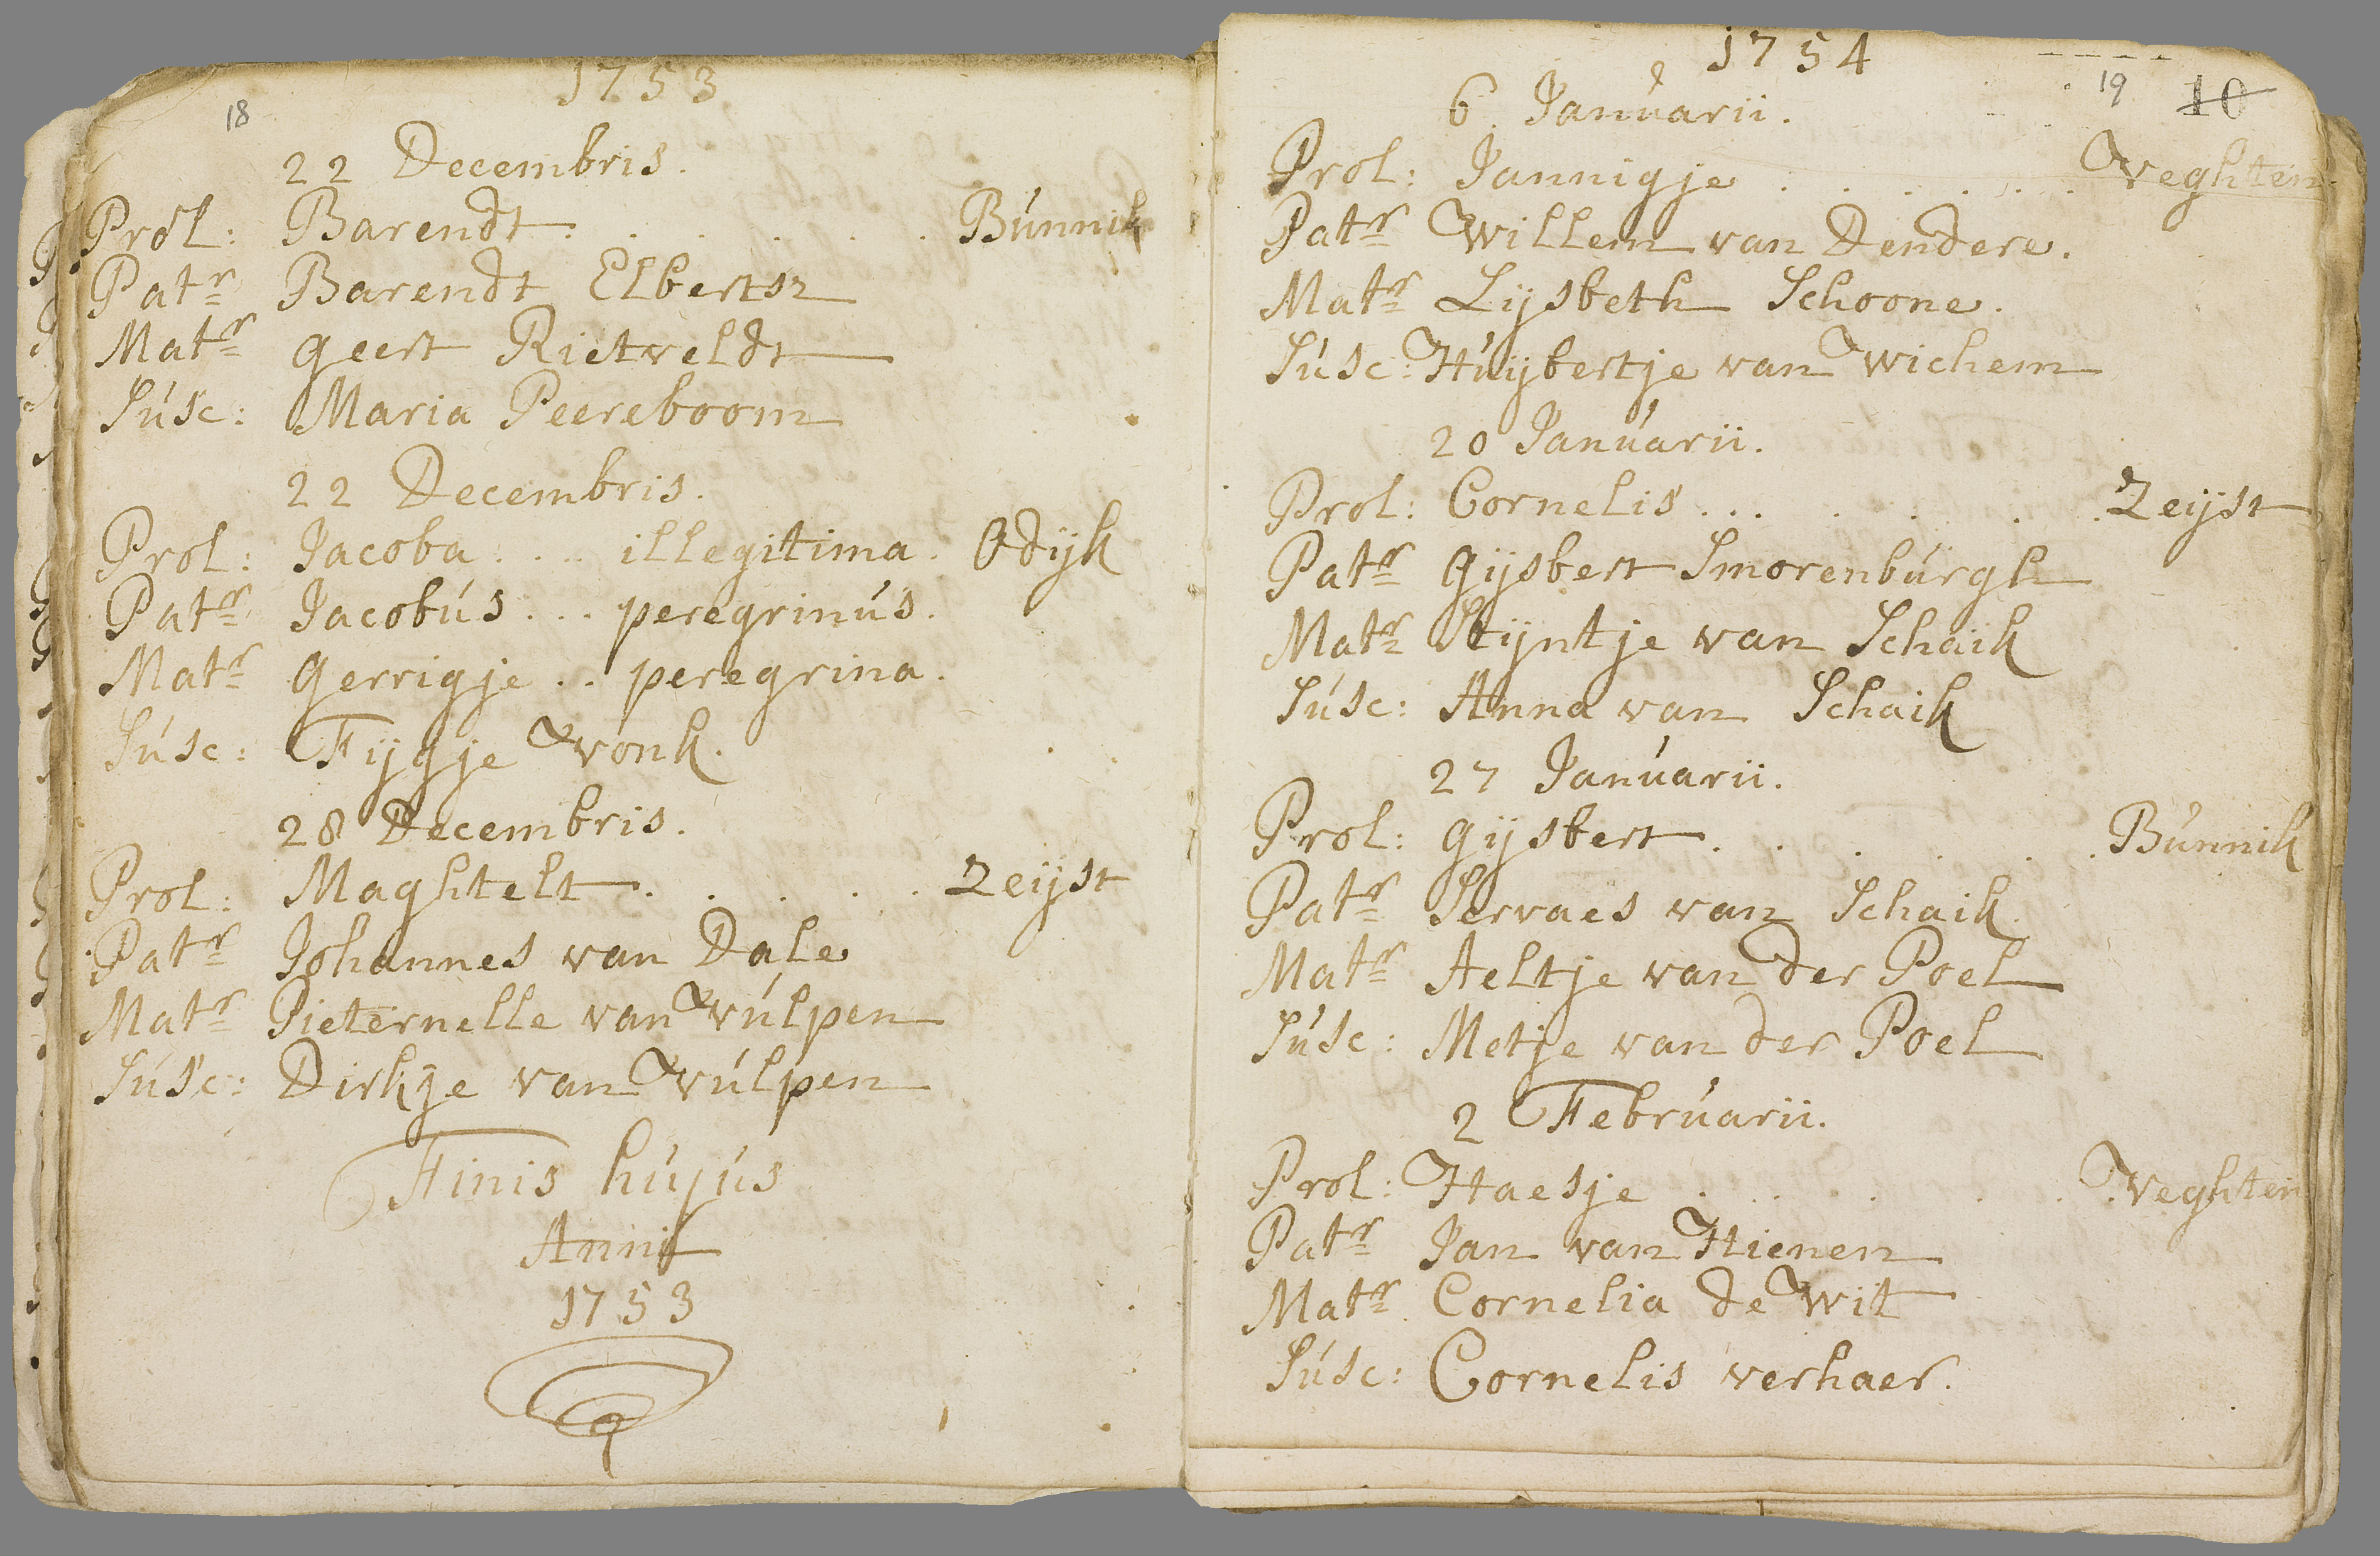 1753
18
22 Decembris.
Prol: Barendt . . . . . . Búnnik
Patr Barendt Elbertsz
Matr Geert Rietveldt
Súsc: Maria Peereboom
22 Decembris.
Prol: Jacoba . . . illegitima. Odijk
Patr Jacobús . . . peregrinús.
Matr Gerrigje . . peregrina.
Súsc: Fijgje Vonk.
28 Decembris.
Prol: Maghtelt . . . . . Zeijst
Patr Johannes van Dale
Matr Pieternelle van Vúlpen
Súsc: Dirkje van Vúlpen
Finis hújús
Anni
1753
1754
19 10
6 Janúarii.
Prol: Jannigje . . . . . . Veghten
Patr Willem van Dendere.
Matr Lijsbeth Schoone.
Súsc: Húijbertje van Wichem
20 Janúarii.
Prol: Cornelis . . . . . . . Zeijst
Patr Gijsbert Smorenbúrgh
Matr Stijntje van Schaik
Súsc: Anna van Schaik
27 Janúarii.
Prol: Gijsbert . . . . . . Búnnik
Patr Servaes van Schaik.
Matr Aeltje van der Poel
Súsc: Metje van der Poel
2 Febrúarii.
Prol: Haesje . . . . . . . Veghten
Patr Jan van Hienen
Matr Cornelia de Wit
Súsc: Cornelis verhaer.